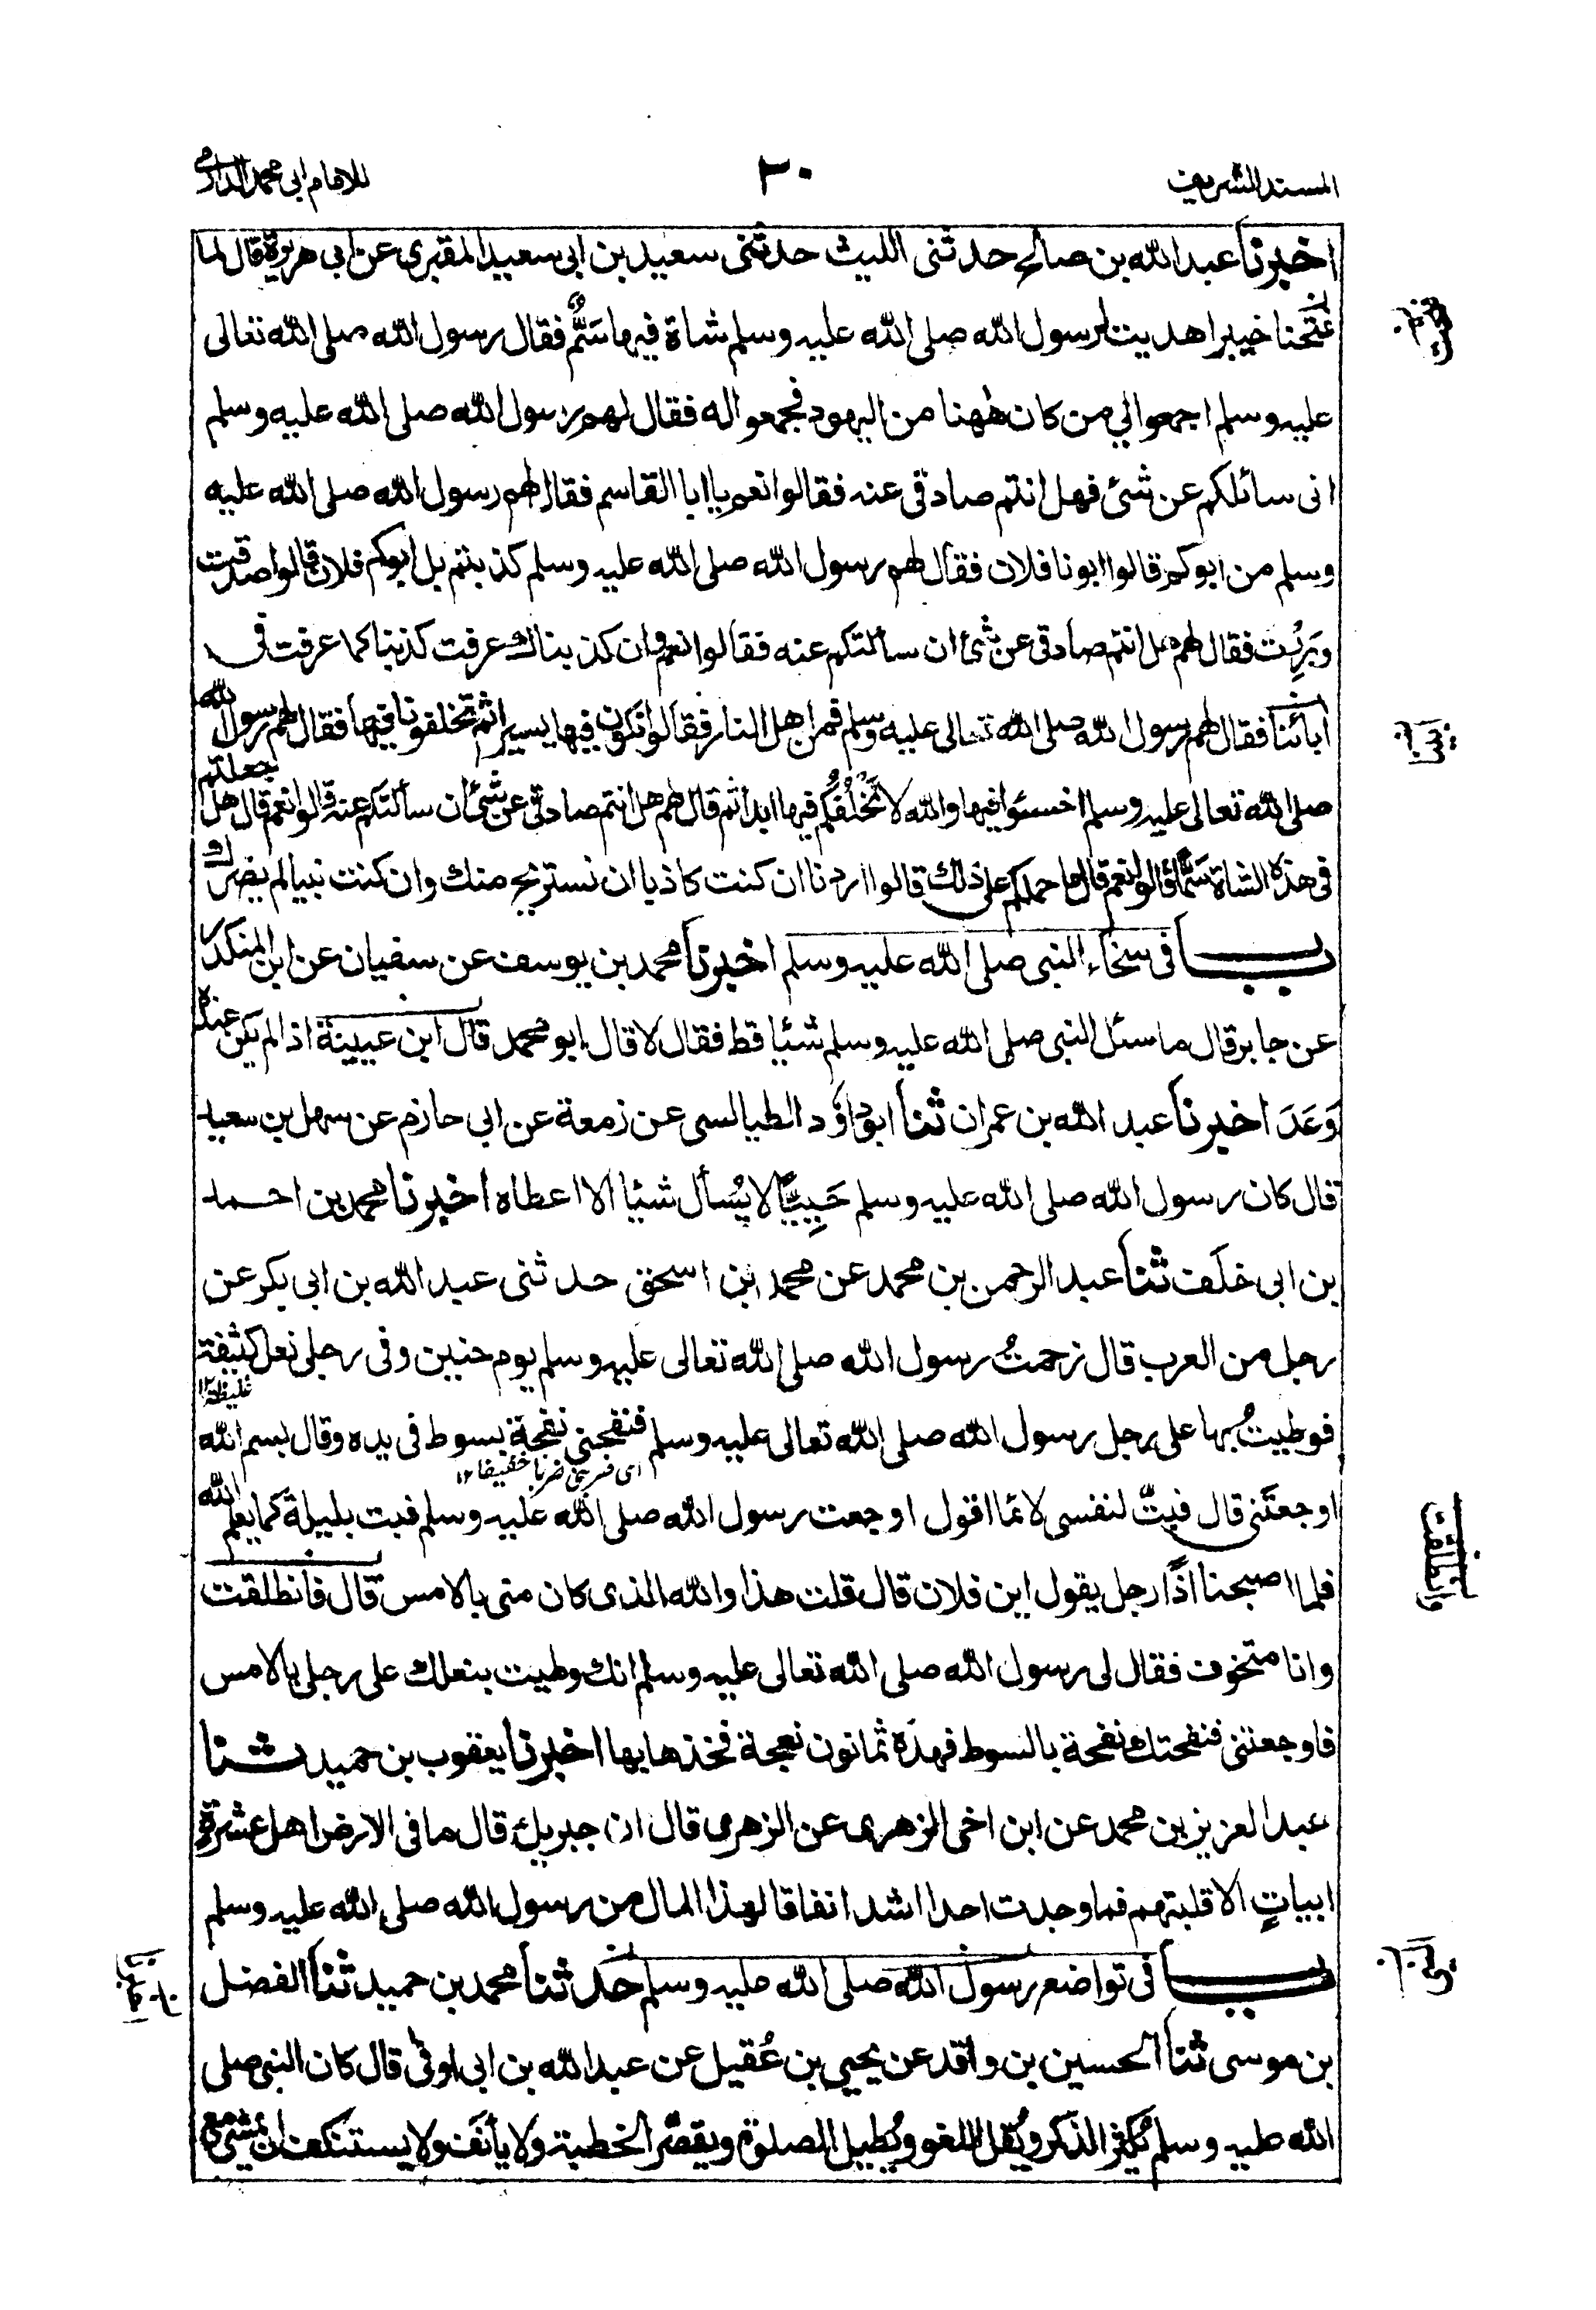 المسند الشريف
٣٠
للامام ابى محمد الدارمى
اخبرنا عبد الله بن صالح حدثنى الليث حدثنى سعيد بن ابى سعيد المقبرى عن ابى هريرة قال لما
فتحنا خيبر اهديت لرسول الله صلى الله عليه وسلم شاة فيها سَمٌّ فقال رسول الله صلى الله تعالى
عليه وسلم اجمعوا لي من كان ههنا من اليهود فجمعوا له فقال لهم رسول الله صلى الله عليه وسلم
انى سائلكم عن شئ فهل انتم صادقى عنه فقالوا نعم يا ابا القاسم فقال لهم رسول الله صلى الله عليه
وسلم من ابوكم قالوا ابونا فلان فقال لهم رسول الله صلى الله عليه وسلم كذبتم بل ابوكم فلان قالوا صدقت
وبَرِرْت فقال لهم هل انتم صادقى عن شئ ان سألتكم عنه فقالوا نعم وان كذبناك عرفت كذبنا كما عرفت فى
آبائنا فقال لهم رسول الله صلى الله تعالى عليه وسلم فمن اهل النار فقالوا نكون فيها يسيرا ثم تخلفونا فيها فقال لهم رسول الله
صلى الله تعالى عليه وسلم اخسئوا فيها والله لا نَخْلُفُكُم فيها ابدا ثم قال لهم هل انتم صادقى عن شئ ان سألتكم عنه قالوا نعم قال هل جعلتم
فى هذه الشاة سَمًّا قالوا نعم قال ما حملكم على ذلك قالوا اردنا ان كنت كاذبا ان نستريح منك وان كنت نبيا لم يضرك
باب فى سخاء النبى صلى الله عليه وسلم اخبرنا محمد بن يوسف عن سفيان عن ابن المنكدر
عن جابر قال ما سئل النبى صلى الله عليه وسلم شيئا قط فقال لا قال ابو محمد قال ابن عيينة اذا لم يكن عنده
وَعَدَ اخبرنا عبد الله بن عمران ثنا ابو داؤد الطيالسى عن زمعة عن ابى حازم عن سهل بن سعيد
قال كان رسول الله صلى الله عليه وسلم حَيِيًّا لا يُسأل شيئا الا اعطاه اخبرنا محمد بن احمد
بن ابى خلَف ثنا عبد الرحمن بن محمد عن محمد ابن اسحق حدثنى عبد الله بن ابى بكر عن
رجل من العرب قال زحمتُ رسول الله صلى الله تعالى عليه وسلم يوم حنين وفى رجلى نعل كثيفة
غليظة ١٢
فوطيتُ بها على رجل رسول الله صلى الله تعالى عليه وسلم فنفحنى نفحة بسوط فى يده وقال بسم الله
اى ضربنى ضربا خفيفا ١٢
اوجعتَنى قال فبِتُّ لنفسى لائما اقول اوجعت رسول الله صلى الله عليه وسلم فبت بليلة كما يعلم الله
فلما اصبحنا اذًا رجل يقول اين فلان قال قلت هذا والله الذى كان منى بالامس قال فانطلقت
وانا متخوف فقال لى رسول الله صلى الله تعالى عليه وسلم انك وطيت بنعلك على رجلى بالامس
فاوجعتنى فنفحتك نفحة بالسوط فهذه ثمانون نعجة فخذها بها اخبرنا يعقوب بن حميد ثنا
عبد العزيز بن محمد عن ابن اخى الزهرى عن الزهرى قال ان جبريل قال ما فى الارض اهل عشرةِ
ابياتٍ الا قلبتهم فما وجدت احدا اشد انفاقا لهذا المال من رسول الله صلى الله عليه وسلم
باب فى تواضع رسول الله صلى الله عليه وسلم حدثنا محمد بن حميد ثنا الفضل
بن موسى ثنا الحسين بن واقد عن يحيى بن عُقيل عن عبد الله بن ابى اوفى قال كان النبى صلى
الله عليه وسلم يُكثر الذكر ويُقل اللغو ويُطيل الصلوة ويقصّر الخطبة ولا يأنَف ولا يستنكف ان يمشى مع
فانطلقت